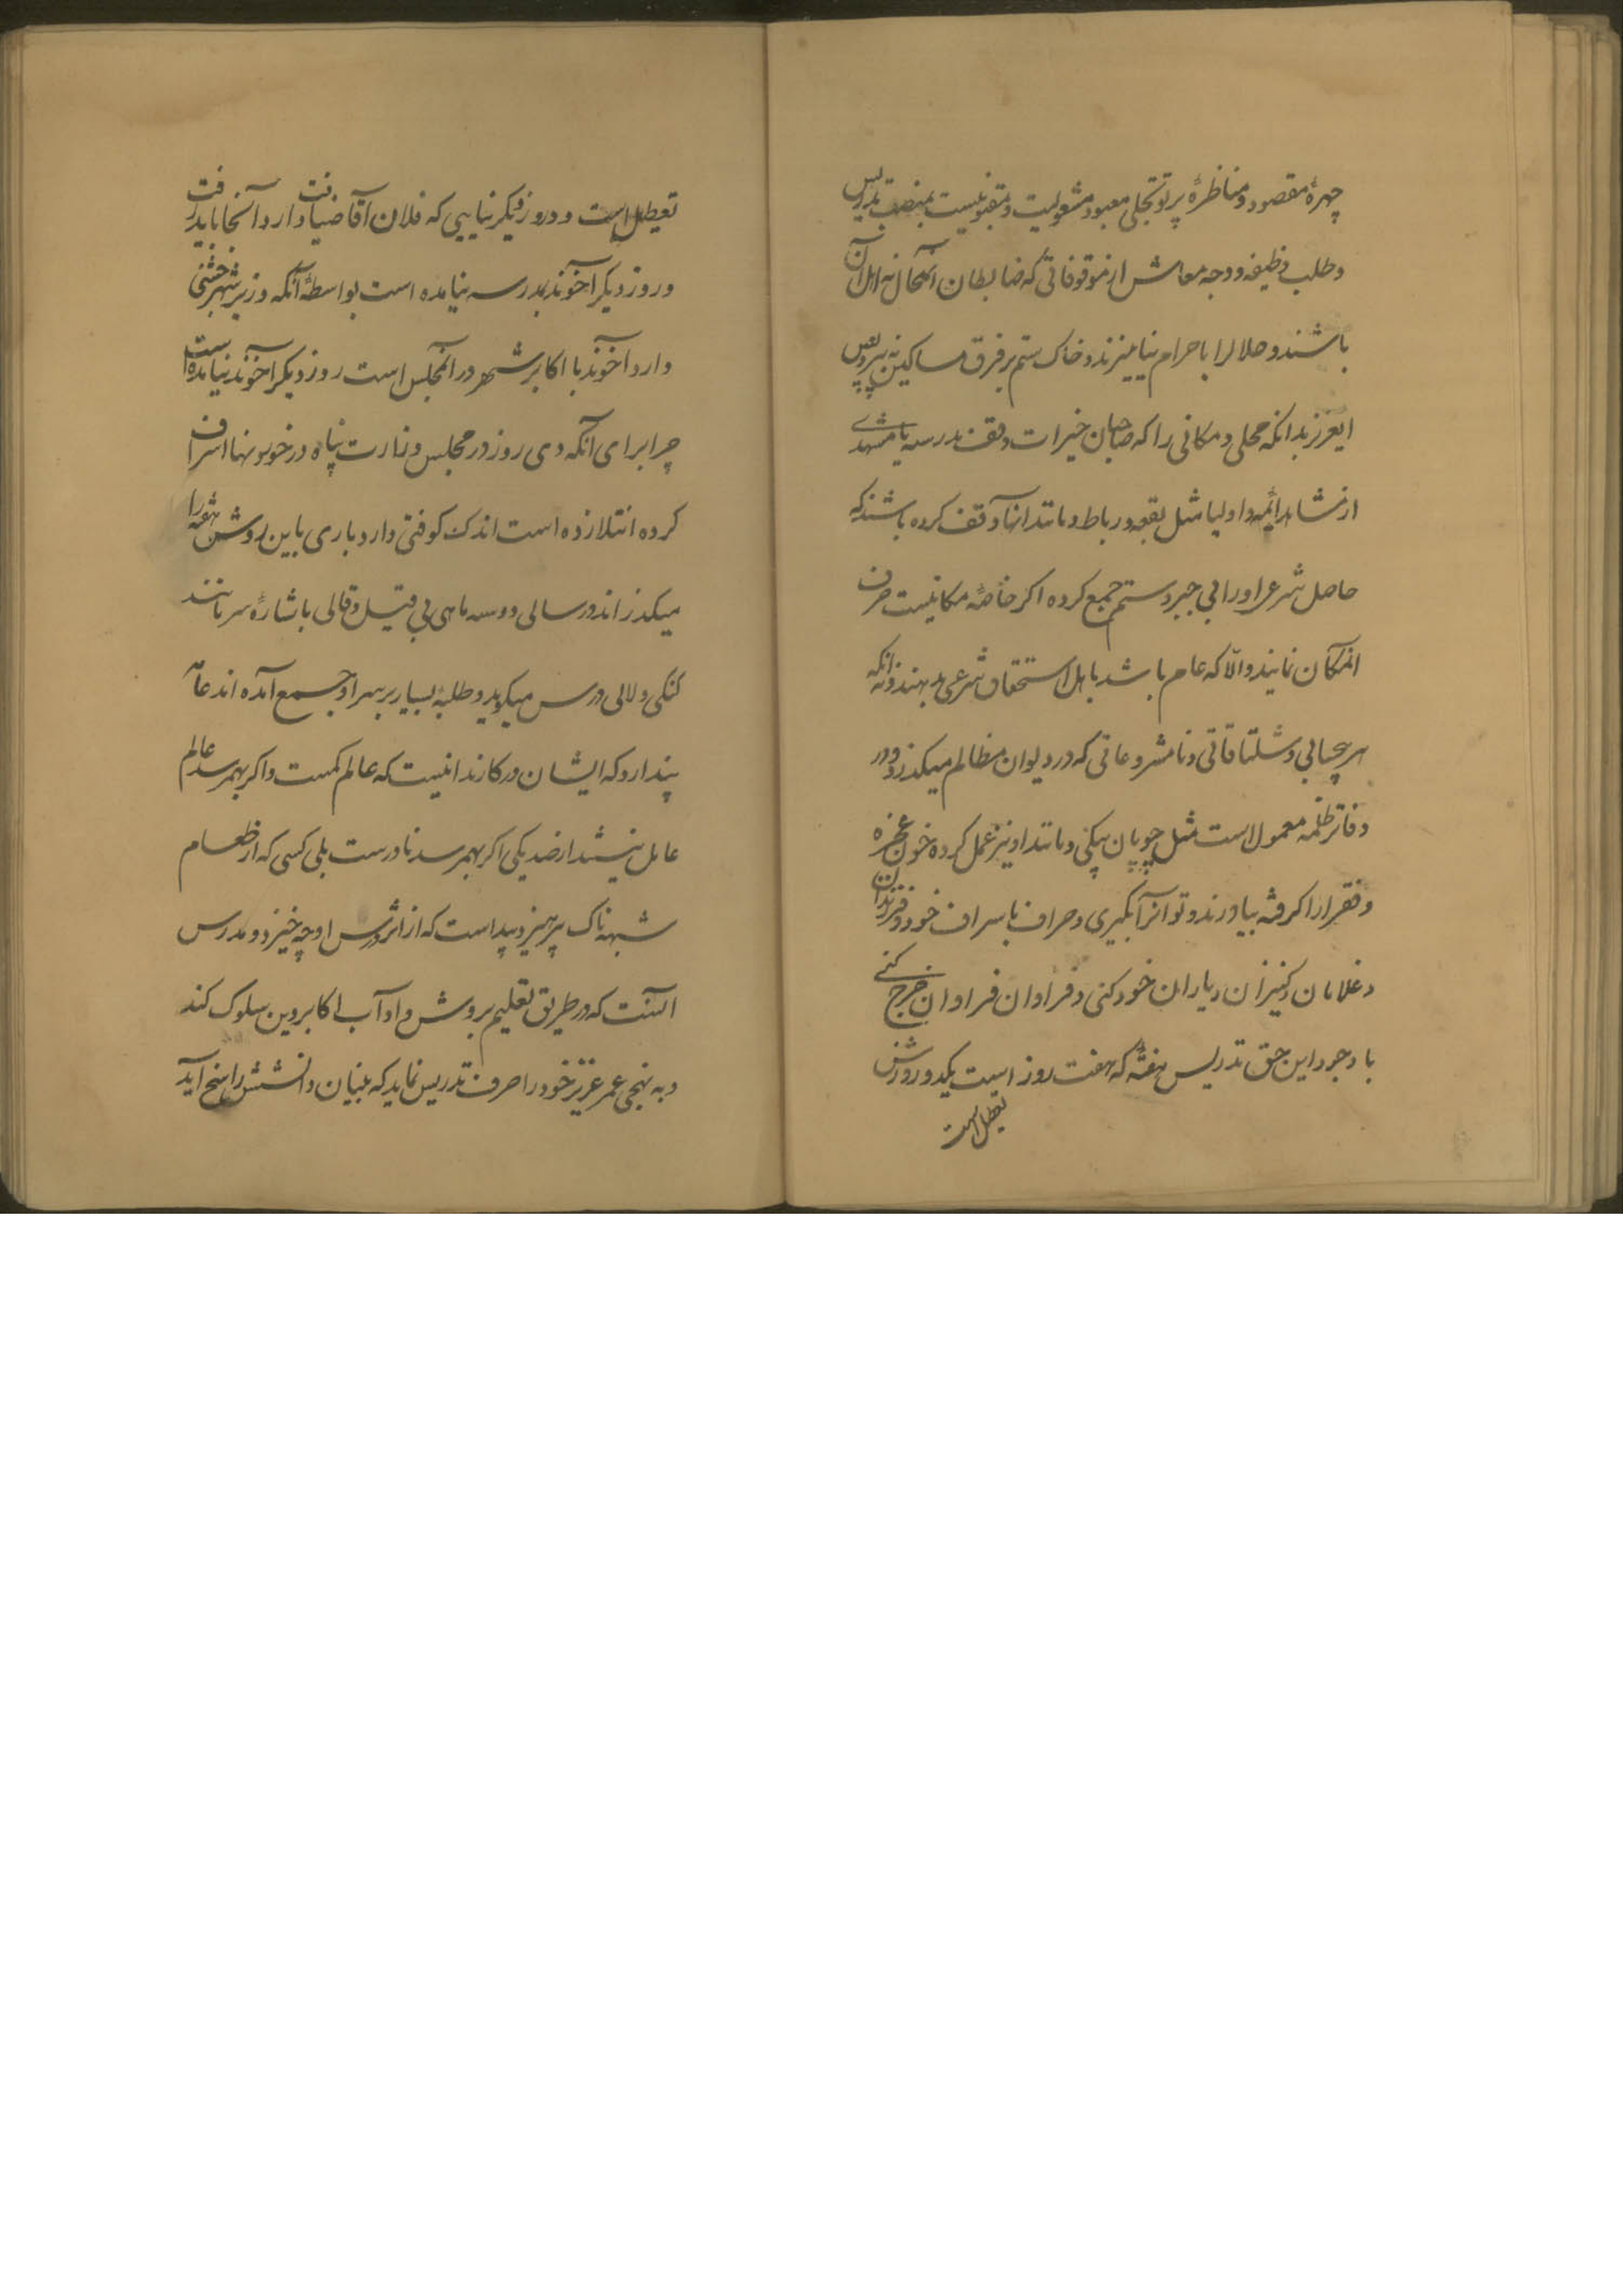 چهرهٔ مقصود و مناظرهٔ پرتو تجلی معبود مشغولیت و مقبو نیست بمنصب تدریس
و طلب وظیفه و وجه معاش از موقوفاتی که ضابطان آنمحال نه اهل آن
باشند و حلالرا با حرام نیامیزند و خاک ستم بر فرق مساکین نه
ایعزیز بدانکه محلی و مکانی را که صاحبان خیرات وقف مدرسه یا مشهدی
از مشاهد ائمه و اولیا مثل بقعه و رباط و مانند انها وقف کرده باشند که
حاصل شرعی او را بی جبر و ستم جمع کرده اکر خاصهٔ مکانیست صرف
انمکان نمایند و الّا که عام باشد باهل استحقاق شرعی بدهند نه انکه
هر حسابی و شلتاقاتی و نامشروعاتی که در دیوان مظالم میکذرد و در
دفاتر ظلمه معمول است مثل چوپان بیکی و مانند او نیز عمل کرده خون عجزه
و فقرا را کرفته بیاورند و تو انرا بکیری و صراف باسراف خود و فرزندان
و غلامان و کنیزان و یاران خود کنی و فراوان فراوان خرج کنی
با وجود این حق تدریس هفتهٔ که هفت روز است یکدو روزش
تعطیل است
تعطیل است و دو روز دیکر نیایی که فلان آقا ضیافت دارد آنجا باید رفت
و روز دیکر آخوند بمدرسه نیامده است بواسطهٔ آنکه وزیر شهر جشنی
دارد آخوند با اکابر شهر در آنمجلس است روز دیکر آخوند نیامده است
چرا برای آنکه دی روز در مجلس وزارت پناه در خوردنیها اسراف
کرده امتلا زده است اندک کوفتی دارد باری باین روش هفته را
میکذراند و در سالی دو سه ماهی بی قیل و قالی باشارهٔ سر مانند
کنکی و لالی درس میکوید و طلبهٔ بسیار بر سر او جمع آمده اند عامه
پندارد که ایشان در کارند انیست که عالم کمست و اکر بهمرسد عالم
عامل نیست از صد یکی اکر بهمرسد نادرست بلی کسی که از طعام
شبهه ناک نپرهیزد پیداست که از اثر درس او چه خیزد و مدرس
آنست که در طریق تعلیم بروش و آداب اکابر دین سلوک کند
و به نهجی عمر عزیز خود را صرف تدریس نماید که بنیان دانشش راسخ آید